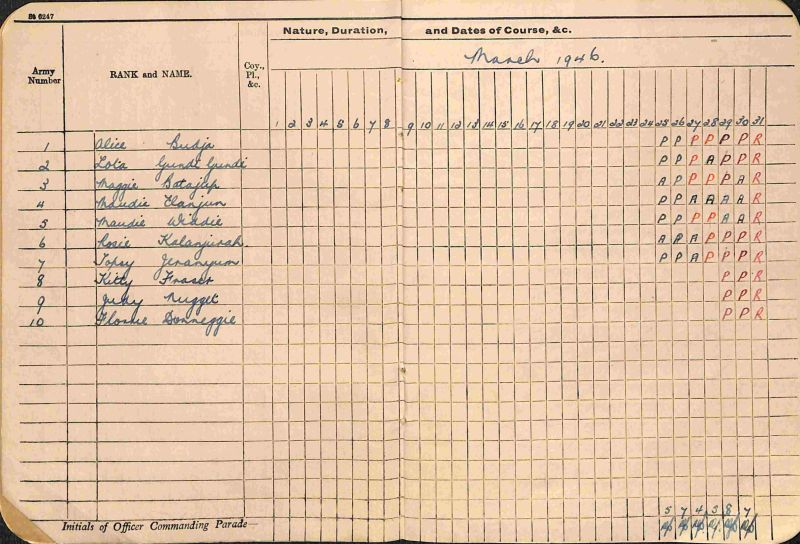 Bb 6247
Nature, Duration, and Dates of Course, &c.
March 1946.
Army Number RANK and NAME. Coy., Pl., &c.
1 2 3 4 5 6 7 8 9 10 11 12 13 14 15 16 17 18 19 20 21 22 23 24 25 26 27 28 29 30 31
1 Alice Budja P P P P P P R
2 Lola Gundi Gundi P P P A P P R
3 Maggie Batajup A P P P P A R
4 Maudie Elanjun P P A A A A R
5 Maudie Widdie P P P P A A R
6 Rosie Kalanjirah A P A P P P R
7 Topsy P P A P P P R
8 Kitty Fraser P P R
9 Judy Nugget P P R
10 Flossie Donneggie P P R
5 7 4 5 8 7
Initials of Officer Commanding Parade—